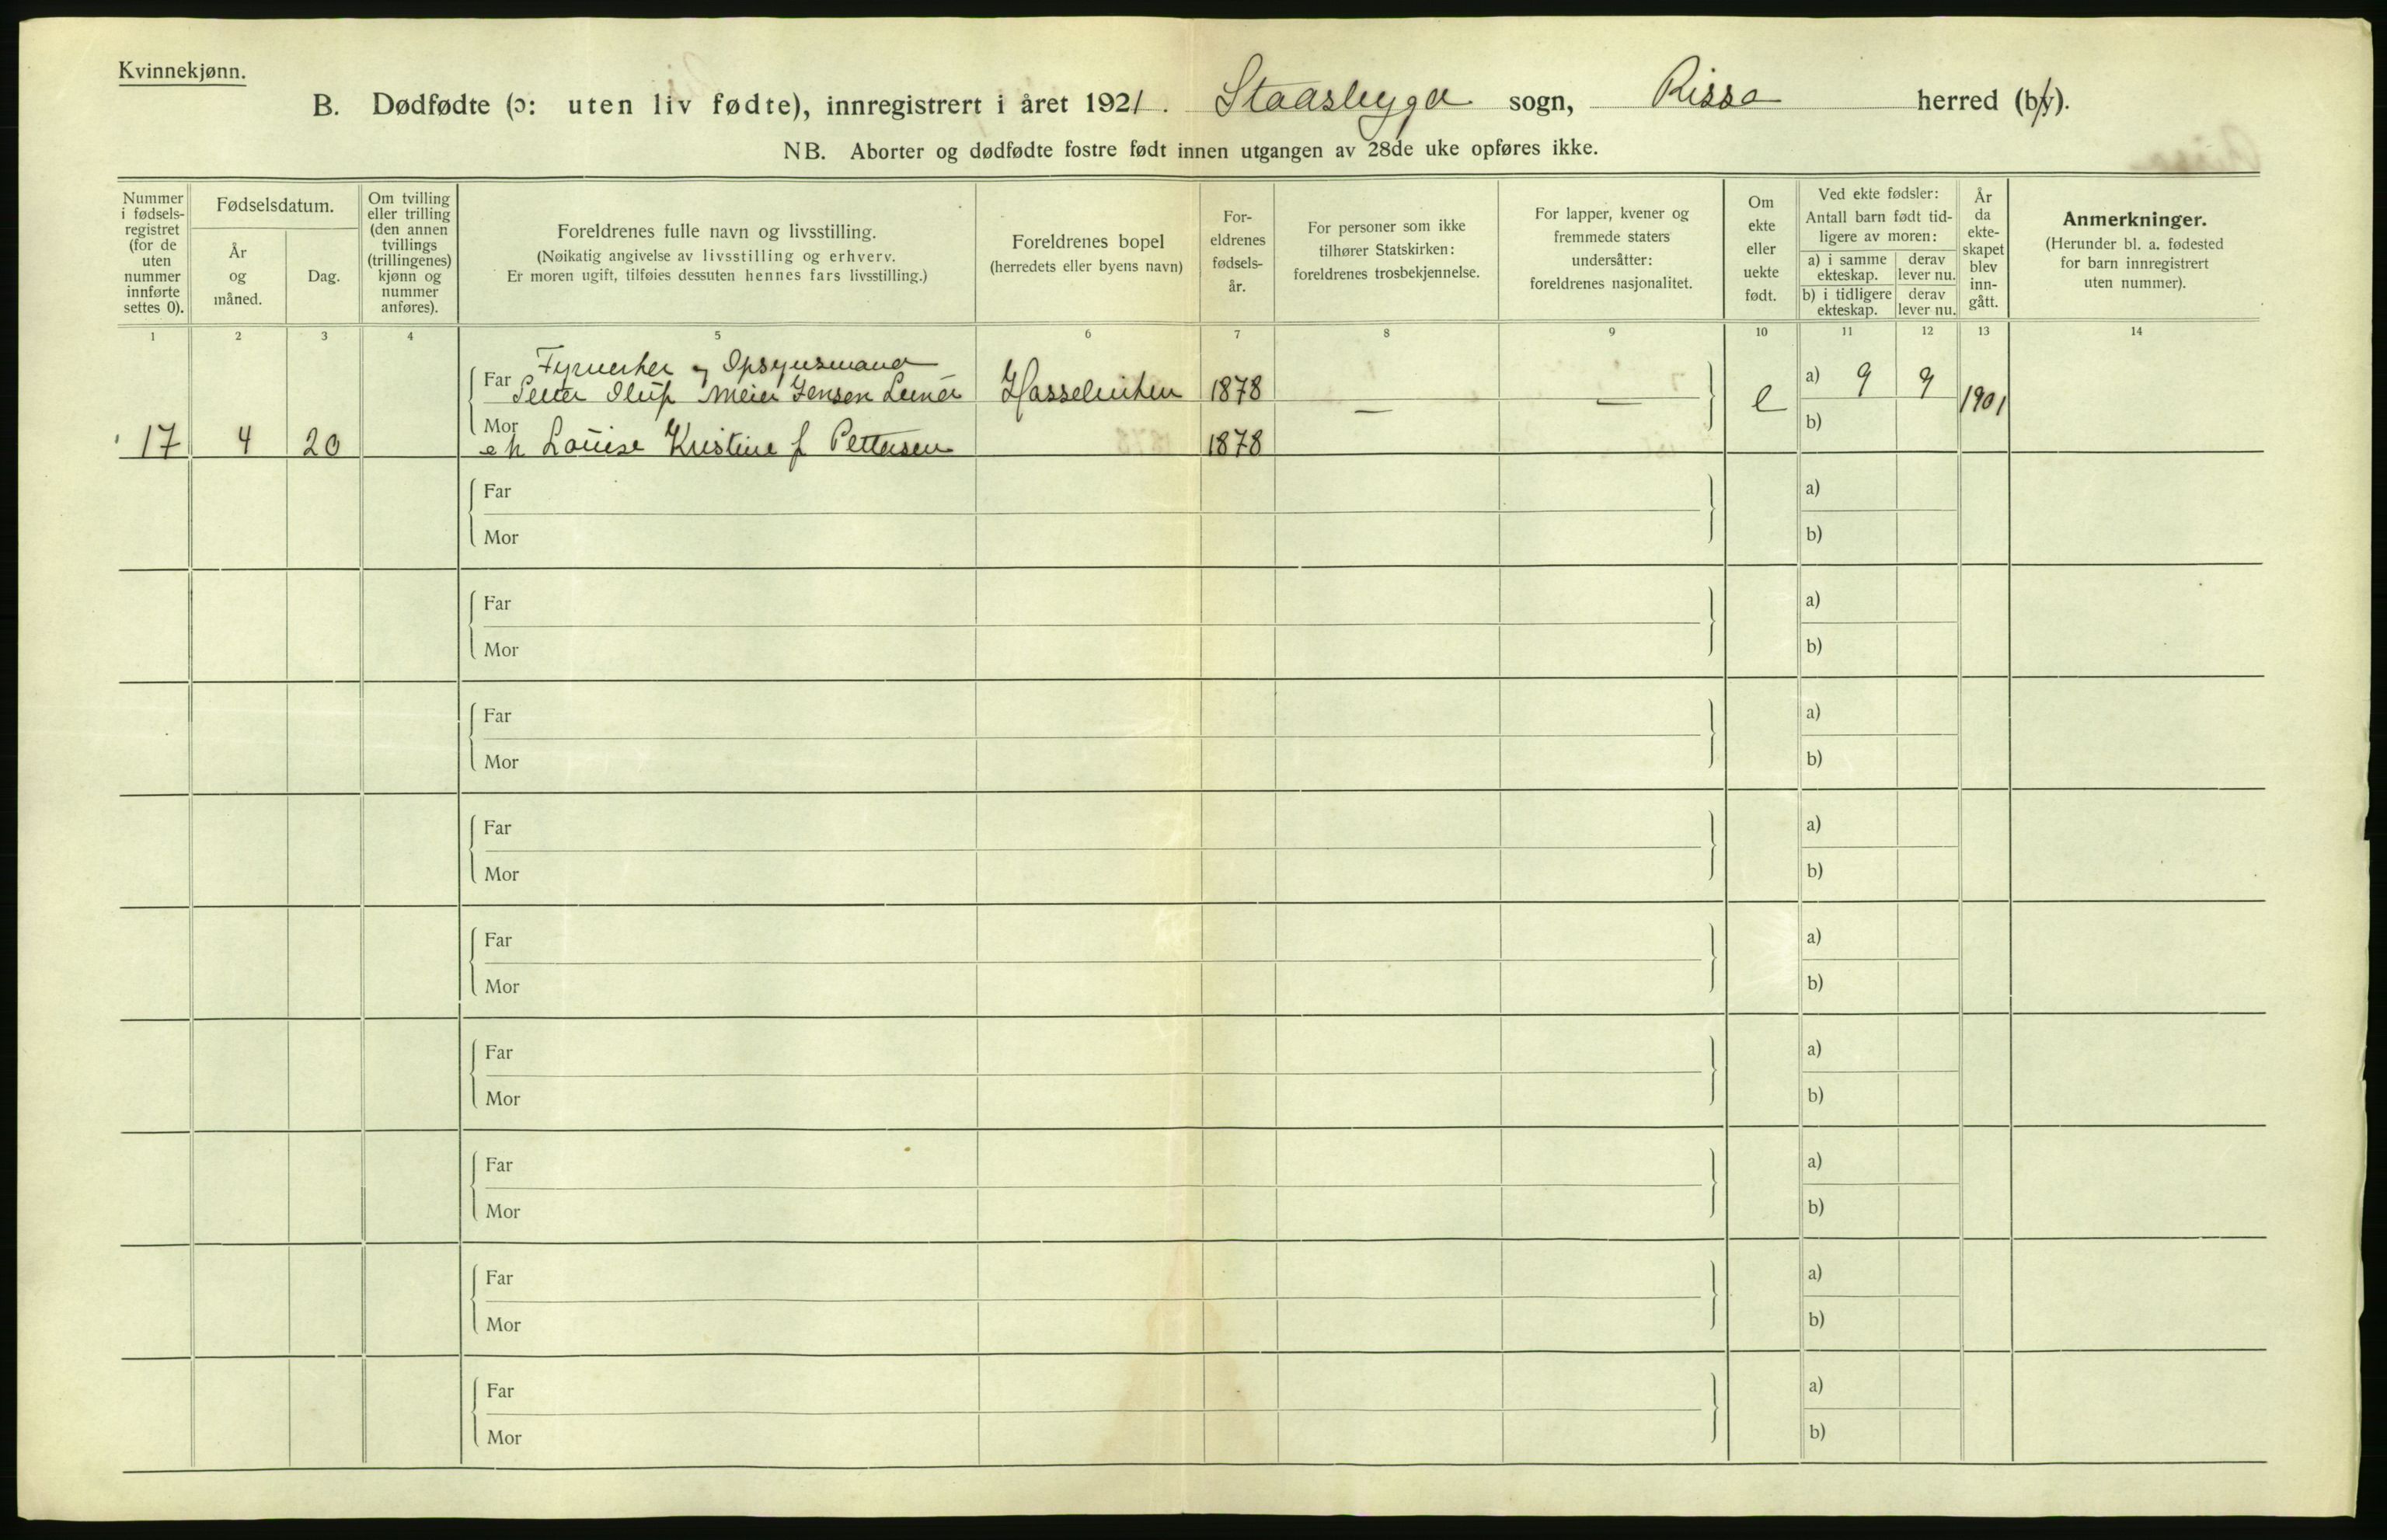 Kvinnekjønn.
B. Dødfødte (ɔ: uten liv fødte), innregistrert i året 1921. Staasbygd sogn, Rissa herred (by).
NB. Aborter og dødfødte fostre født innen utgangen av 28de uke opføres ikke.
Nummer i fødsels-registret (for de uten nummer innførte settes 0).
Fødselsdatum.
År og måned.
Dag.
Om tvilling eller trilling (den annen tvillings (trillingenes) kjønn og nummer anføres).
Foreldrenes fulle navn og livsstilling.
(Nøikatig angivelse av livsstilling og erhverv.
Er moren ugift, tilføies dessuten hennes fars livsstilling.)
Foreldrenes bopel
(herredets eller byens navn)
For-eldrenes fødsels-år.
For personer som ikke tilhører Statskirken: foreldrenes trosbekjennelse.
For lapper, kvener og fremmede staters undersåtter: foreldrenes nasjonalitet.
Om ekte eller uekte født.
Ved ekte fødsler:
Antall barn født tid-ligere av moren:
a) i samme ekteskap.
derav lever nu.
b) i tidligere ekteskap.
derav lever nu.
År da ekte-skapet blev inn-gått.
Anmerkninger.
(Herunder bl. a. fødested for barn innregistrert uten nummer).
1 2 3 4 5 6 7 8 9 10 11 12 13 14
Fyrverker og Opsynsmand
Far Petter Oluf Meier Jensen Hasselviken 1878 — — e a) 9 9 1901
b)
Mor
17 4 20 eh Louise Kristine f Pettersen 1878
Far a)
Mor b)
Far a)
Mor b)
Far a)
Mor b)
Far a)
Mor b)
Far a)
Mor b)
Far a)
Mor b)
Far a)
Mor b)
Far a)
Mor b)
Far a)
Mor b)